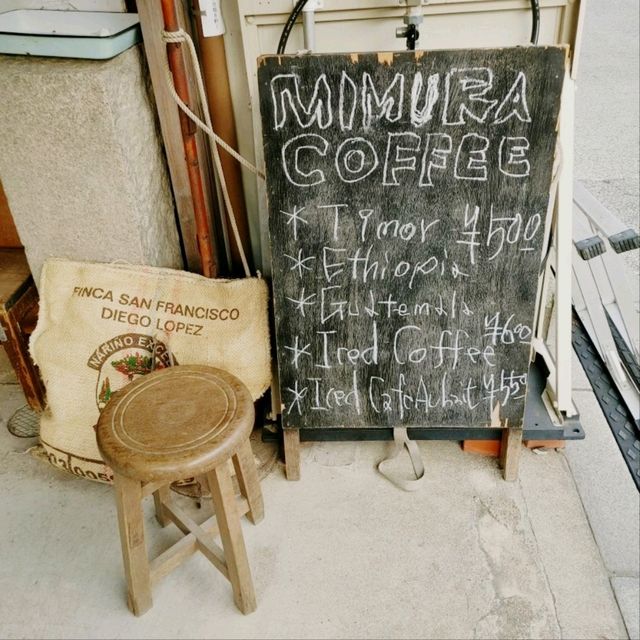 MIMURA
COFFEE
* Timor ¥500
* Ethiopia
* Guatemala
* Iced Coffee ¥600
* Iced CafeAulait ¥550
FINCA SAN FRANCISCO
DIEGO LOPEZ
NARINO